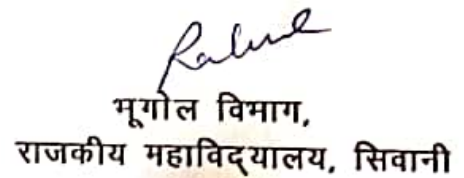 Rahul
भूगोल विभाग,
राजकीय महाविद्यालय, सिवानी